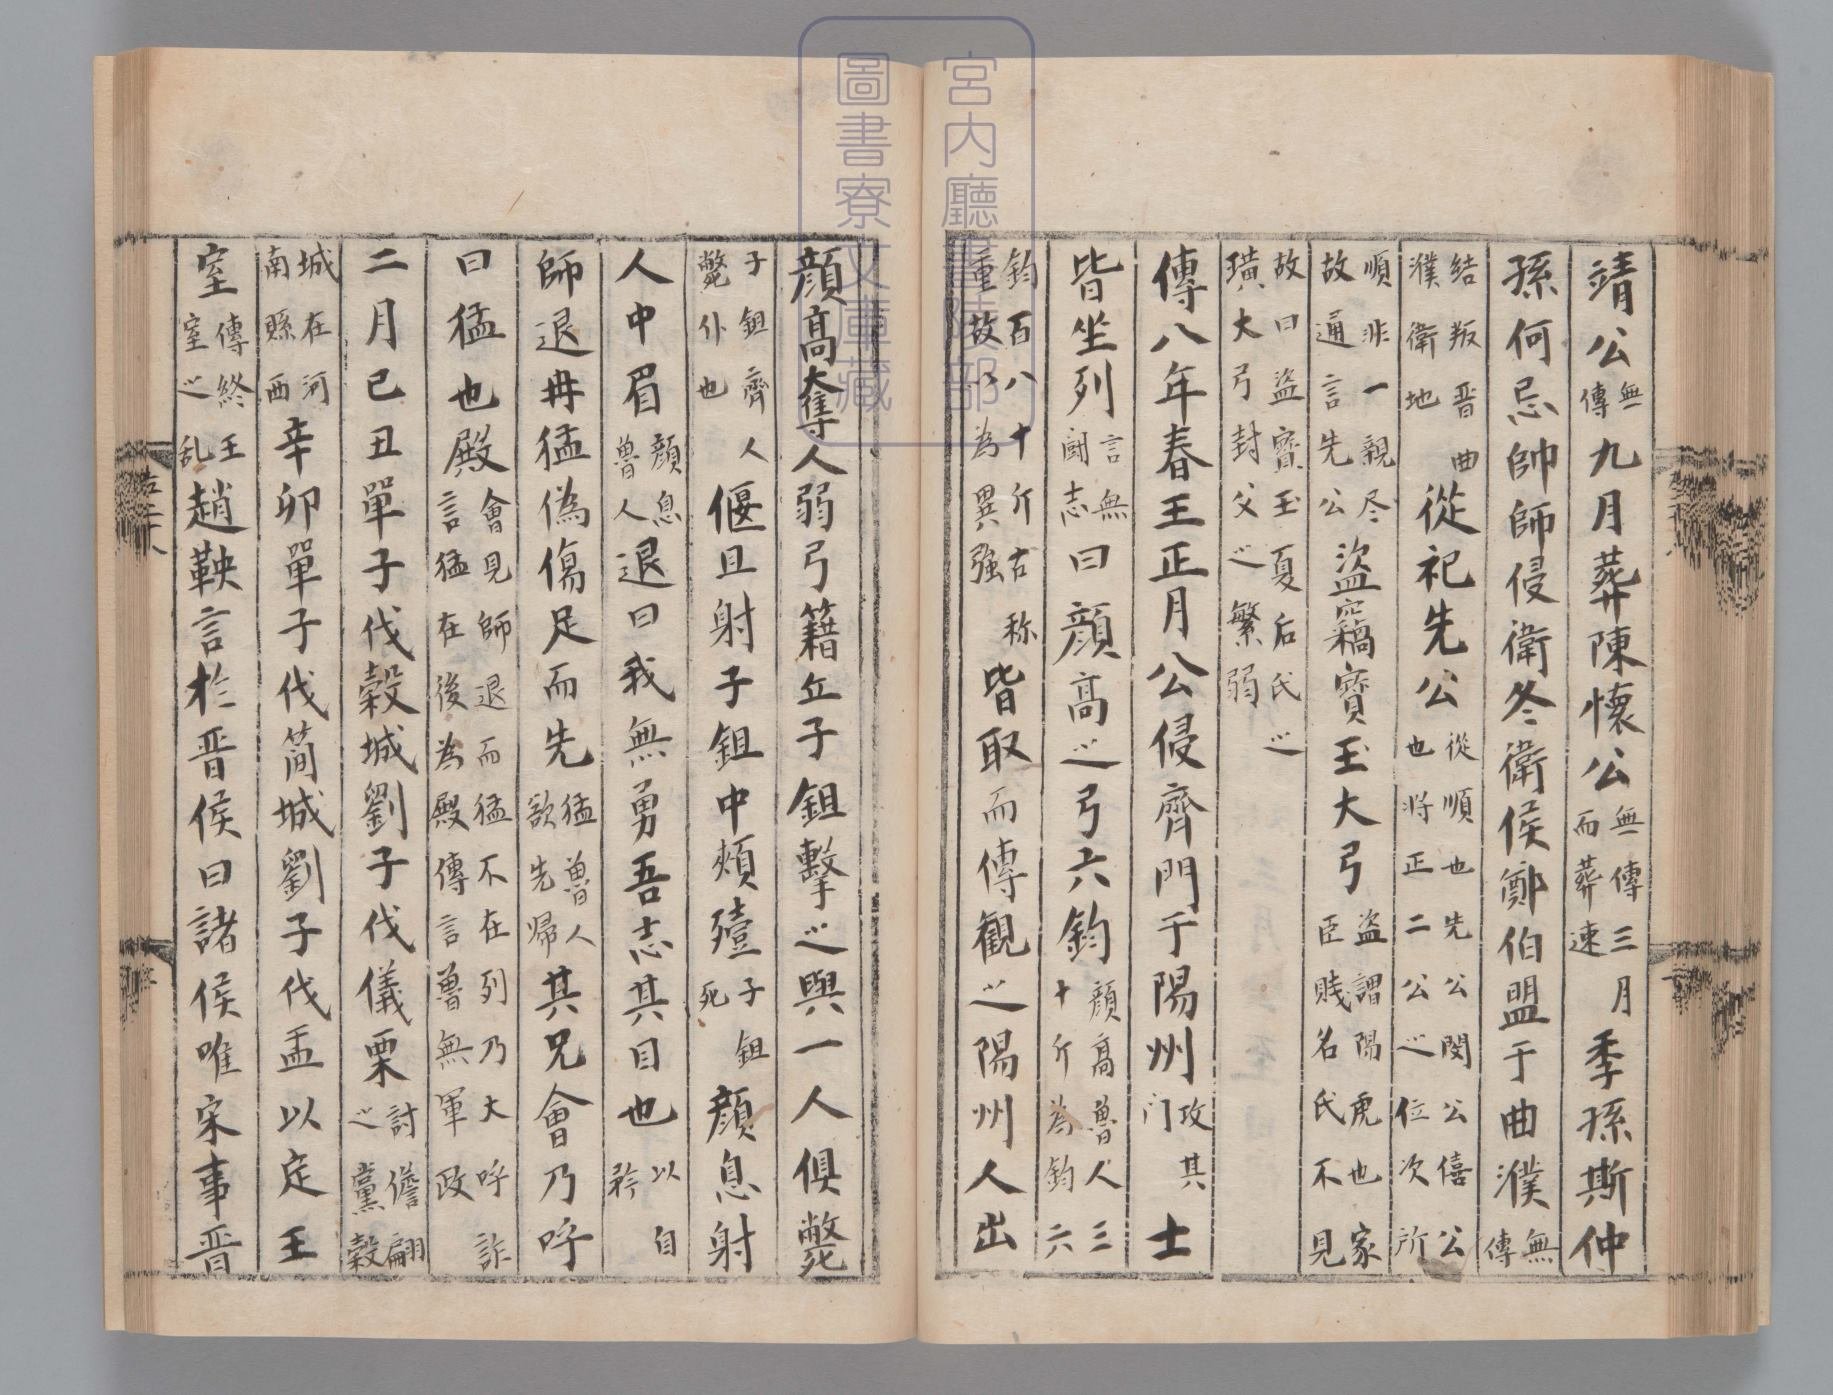 靖公無傳九月葬陳懷公無傳三月而葬速季孫斯仲
孫何忌帥師侵衛冬衛侯鄭伯盟于曲濮無傳
結叛晋曲濮衛地從祀先公從順也先公閔公僖公也将正二公之位次所
順非一親尽故通言先公盜竊寳玉大弓盗謂陽虎也家臣賎名氏不見
故曰盗寳玉夏后氏之璜大弓封父之繁弱
傳八年春王正月公侵齊門于陽州攻其门士
皆坐列言無闘志曰顔髙之弓六鈞顔髙魯人三十斤為鈞六
鈞百八十斤古称重故以為異强皆取而傳観之陽州人出
顔髙奪人弱弓籍丘子鉏擊之與一人俱斃
子鉏齊人斃仆也偃且射子鉏中頰殪子鉏死顔息射
人中眉顔息魯人退曰我無勇吾志其目也以自矜
師退冉猛偽傷足而先猛魯人欲先歸其兄會乃呼
曰猛也殿會見師退而猛不在列乃大呼詐言猛在後為殿傳言魯無軍政
二月己丑單子伐穀城劉子伐儀栗討儋翩之黨穀
城在河南縣西辛卯單子伐簡城劉子伐盂以定王
室傳終王室之乱趙鞅言於晋侯曰諸侯唯宋事晋
宮内廳書陵部
圖書寮文庫藏